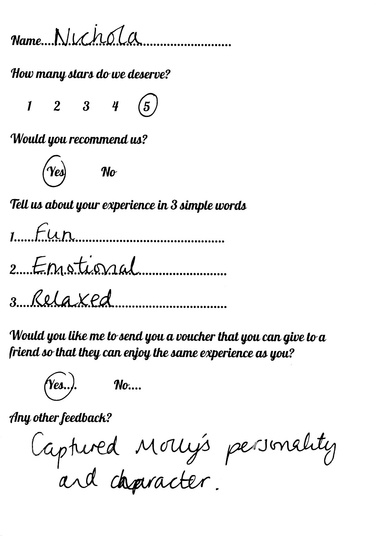 Name....Nichola........................
How many stars do we deserve?
1 2 3 4 5
Would you recommend us?
Yes No
Tell us about your experience in 3 simple words
1.....Fun.......................................
2....Emotional........................
3....Relaxed..............................
Would you like me to send you a voucher that you can give to a
friend so that they can enjoy the same experience as you?
Yes.... No....
Any other feedback?
Captured Molly's personality
and character.